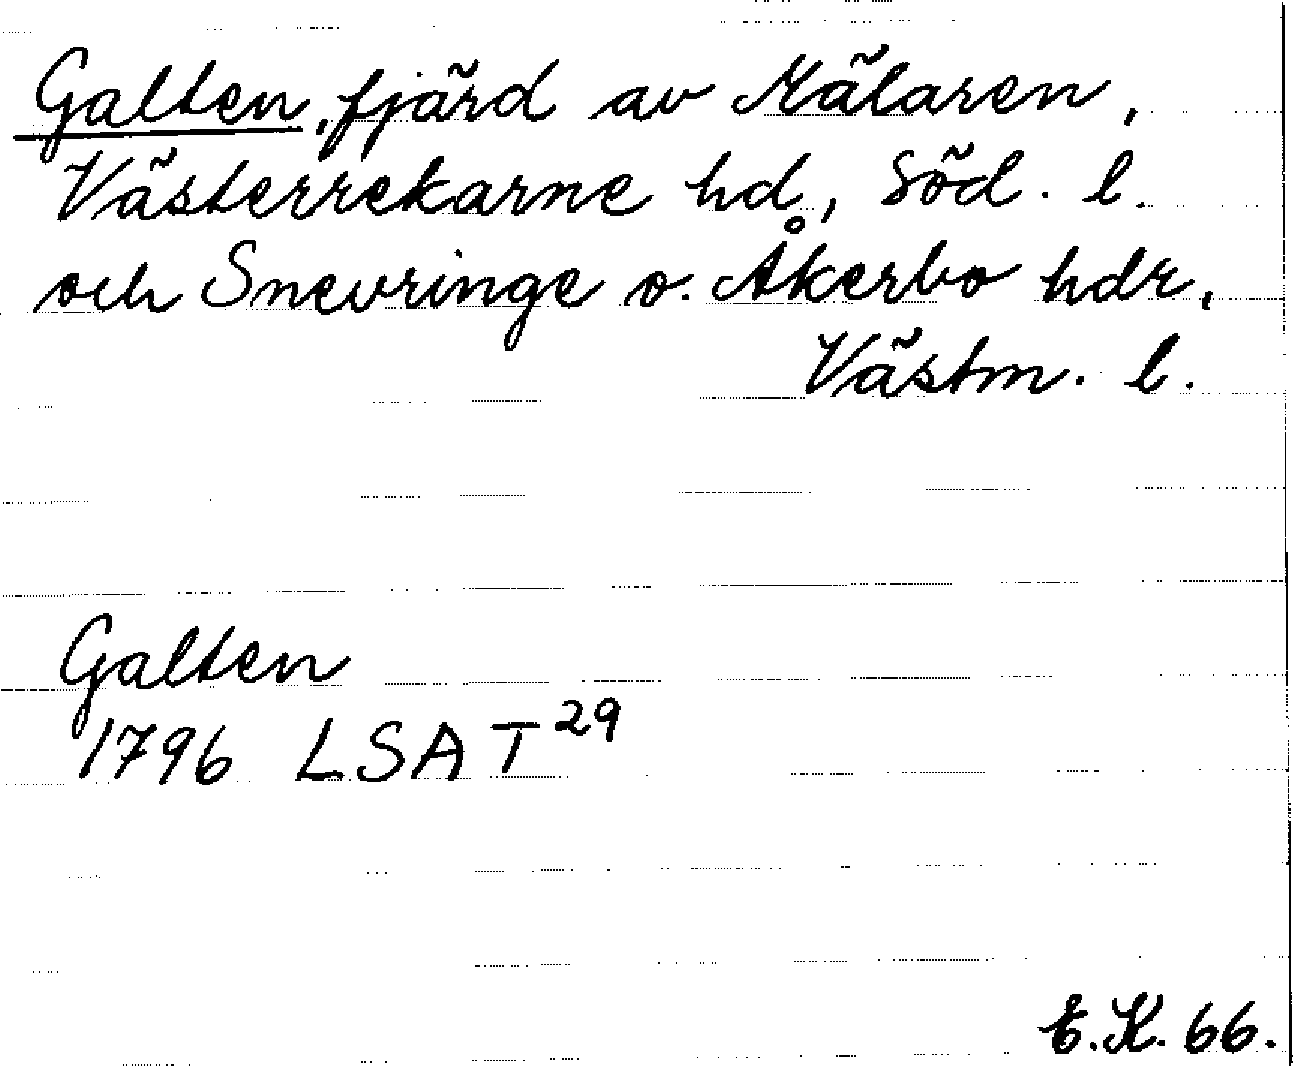 Galten, fjärd av Mälaren,
Västerrekarne hd, Söd. l.
och Snevringe o. Åkerbo hdr,
Västm. l.
Galten
1796 LSA T 29
E.K. 66.